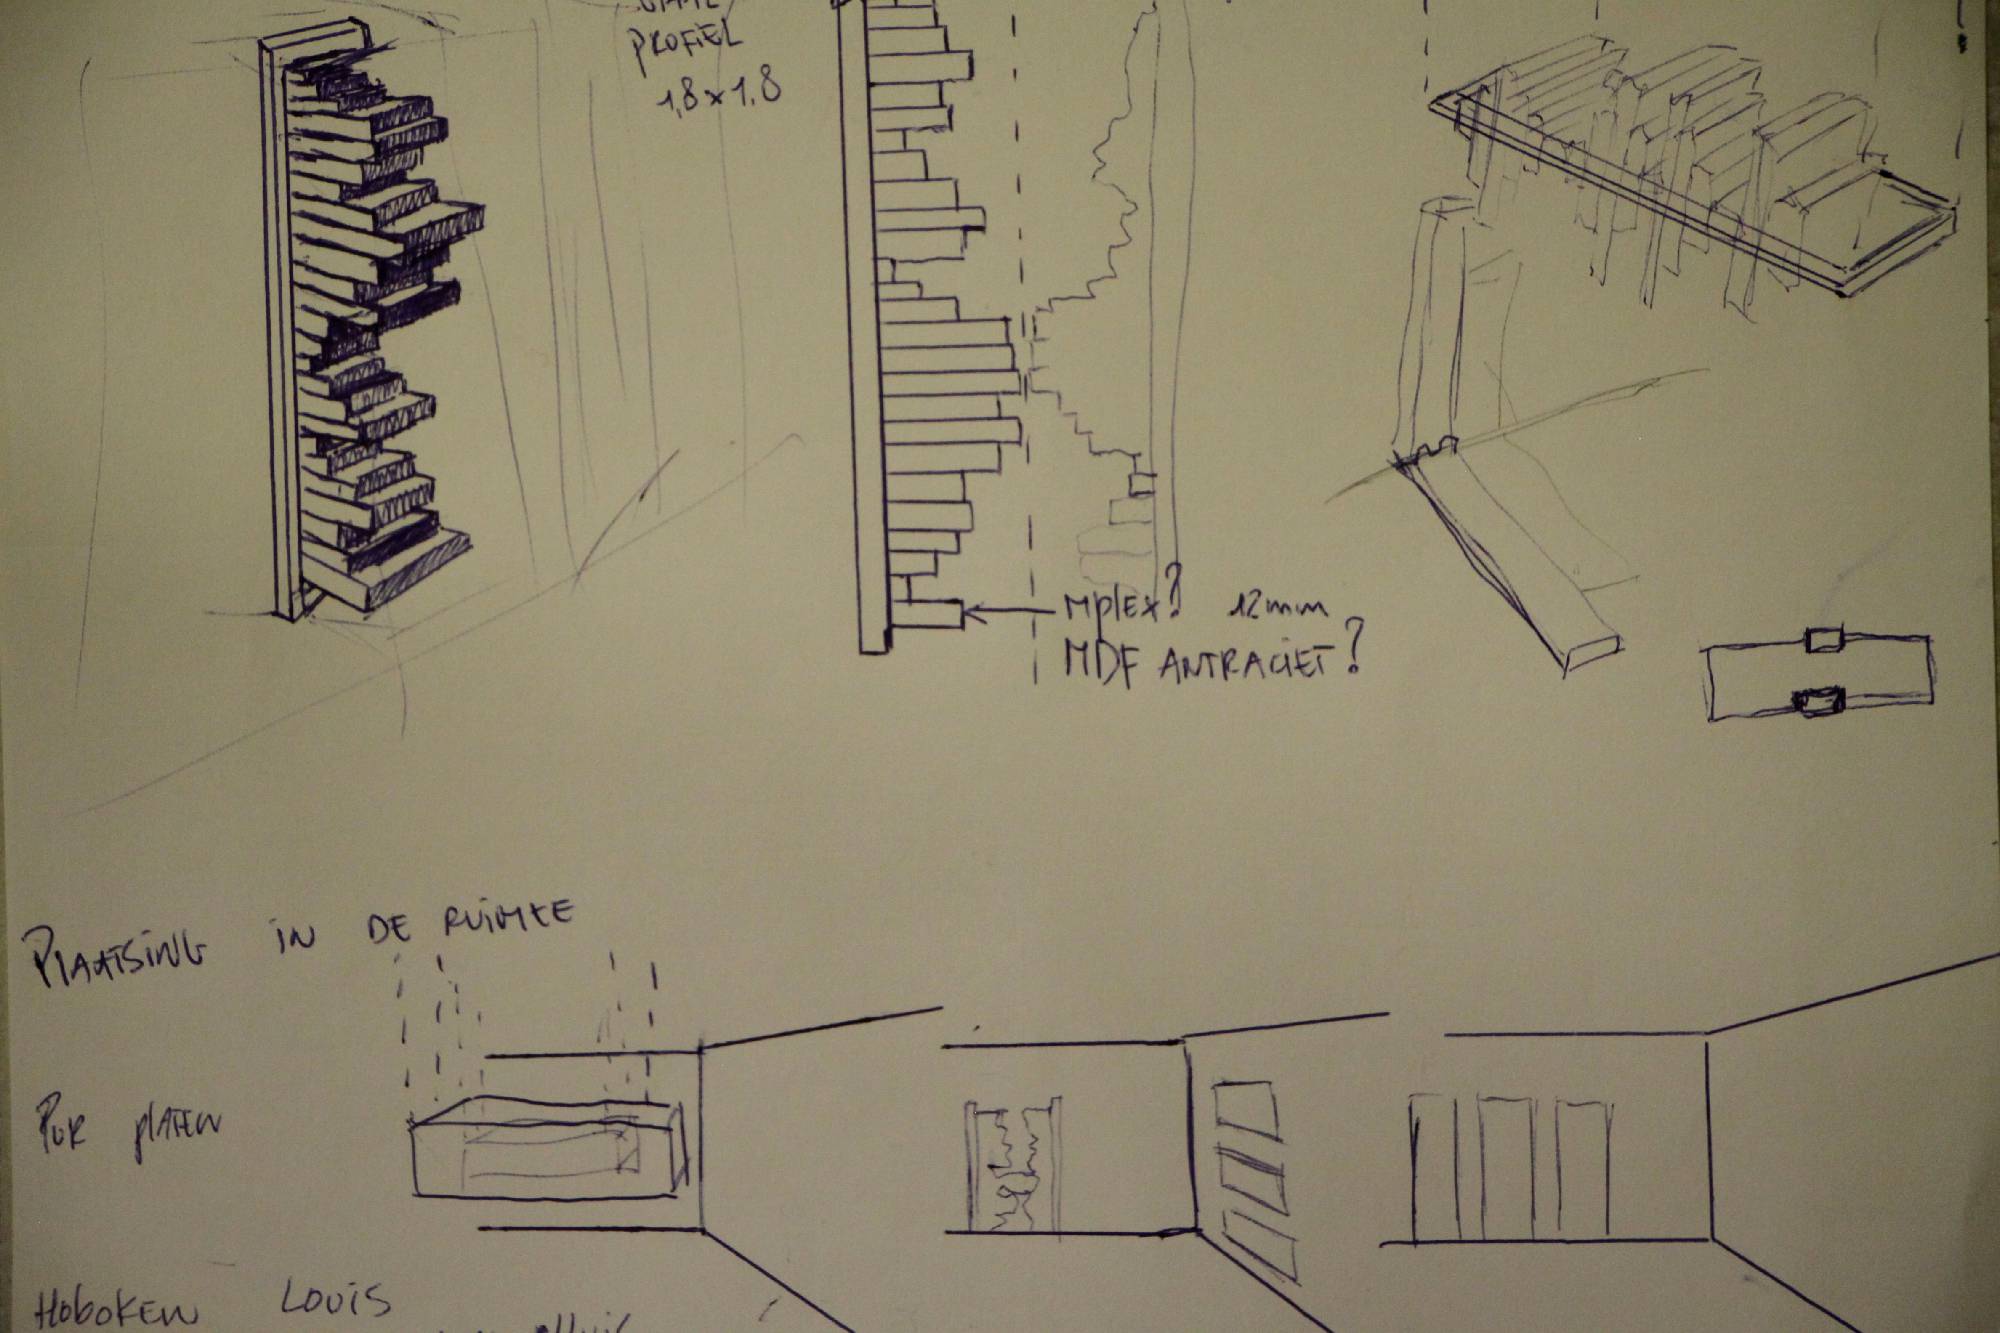 PROFIEL
1,8 x 1,8
Mplex? 12mm
MDF ANTRACIET?
PLAATSING IN DE RUIMTE
PUR PLATEN
HOBOKEN LOUIS